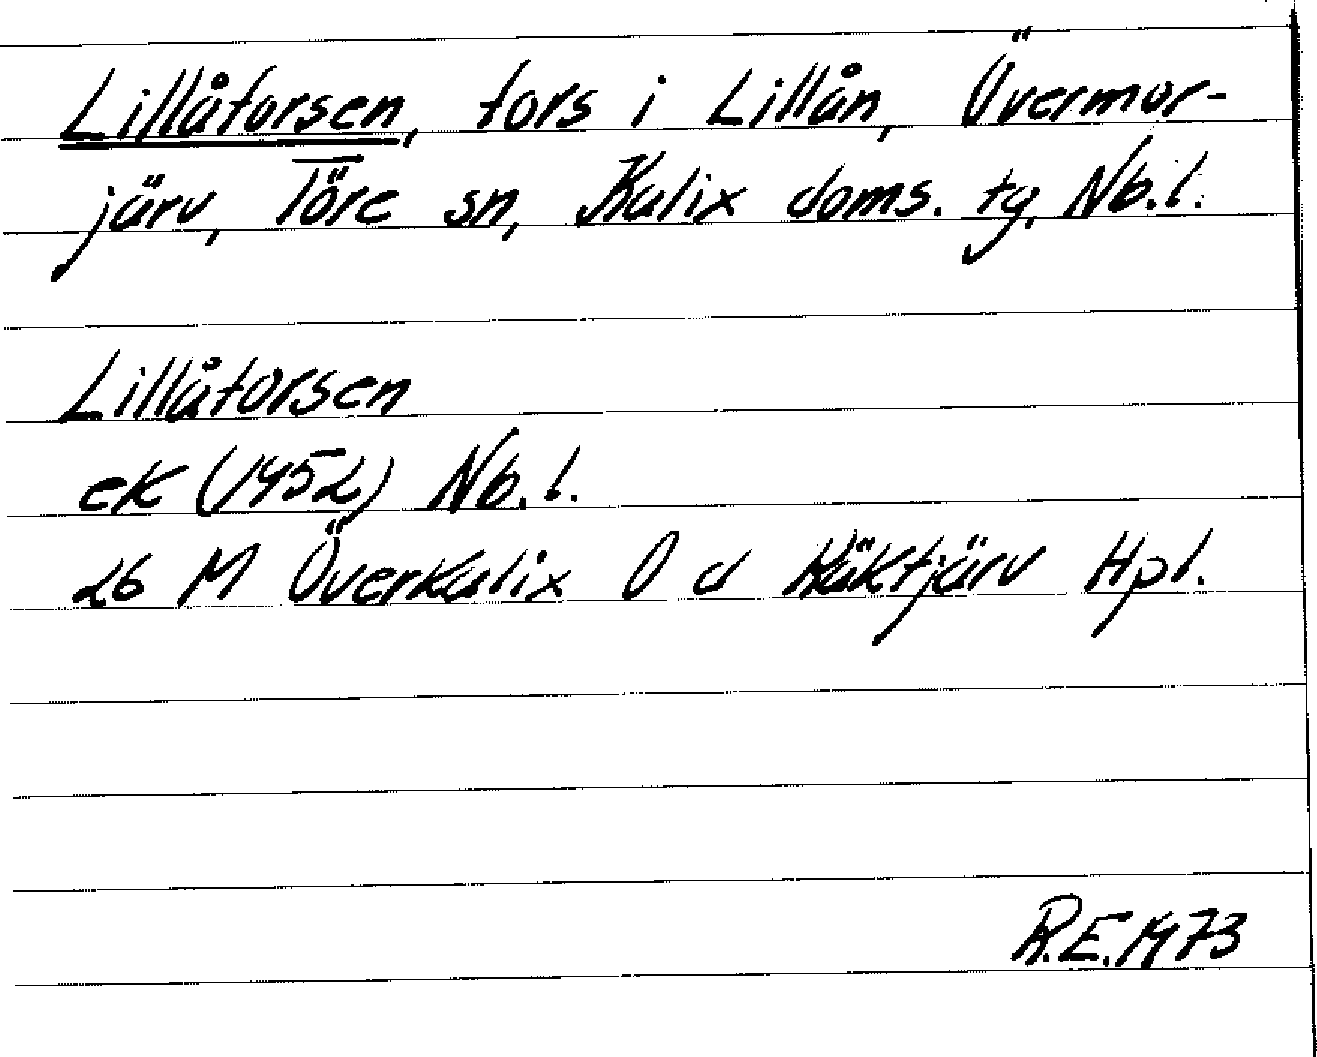 Lillåforsen, fors i Lillån, Övermor-
järv, Töre sn, Kalix doms. tg, Nb.l.
Lillåforsen
ek (1952) Nb.l.
26 M Överkalix 0 d Räktjärv Hpl.
R.E. 1973